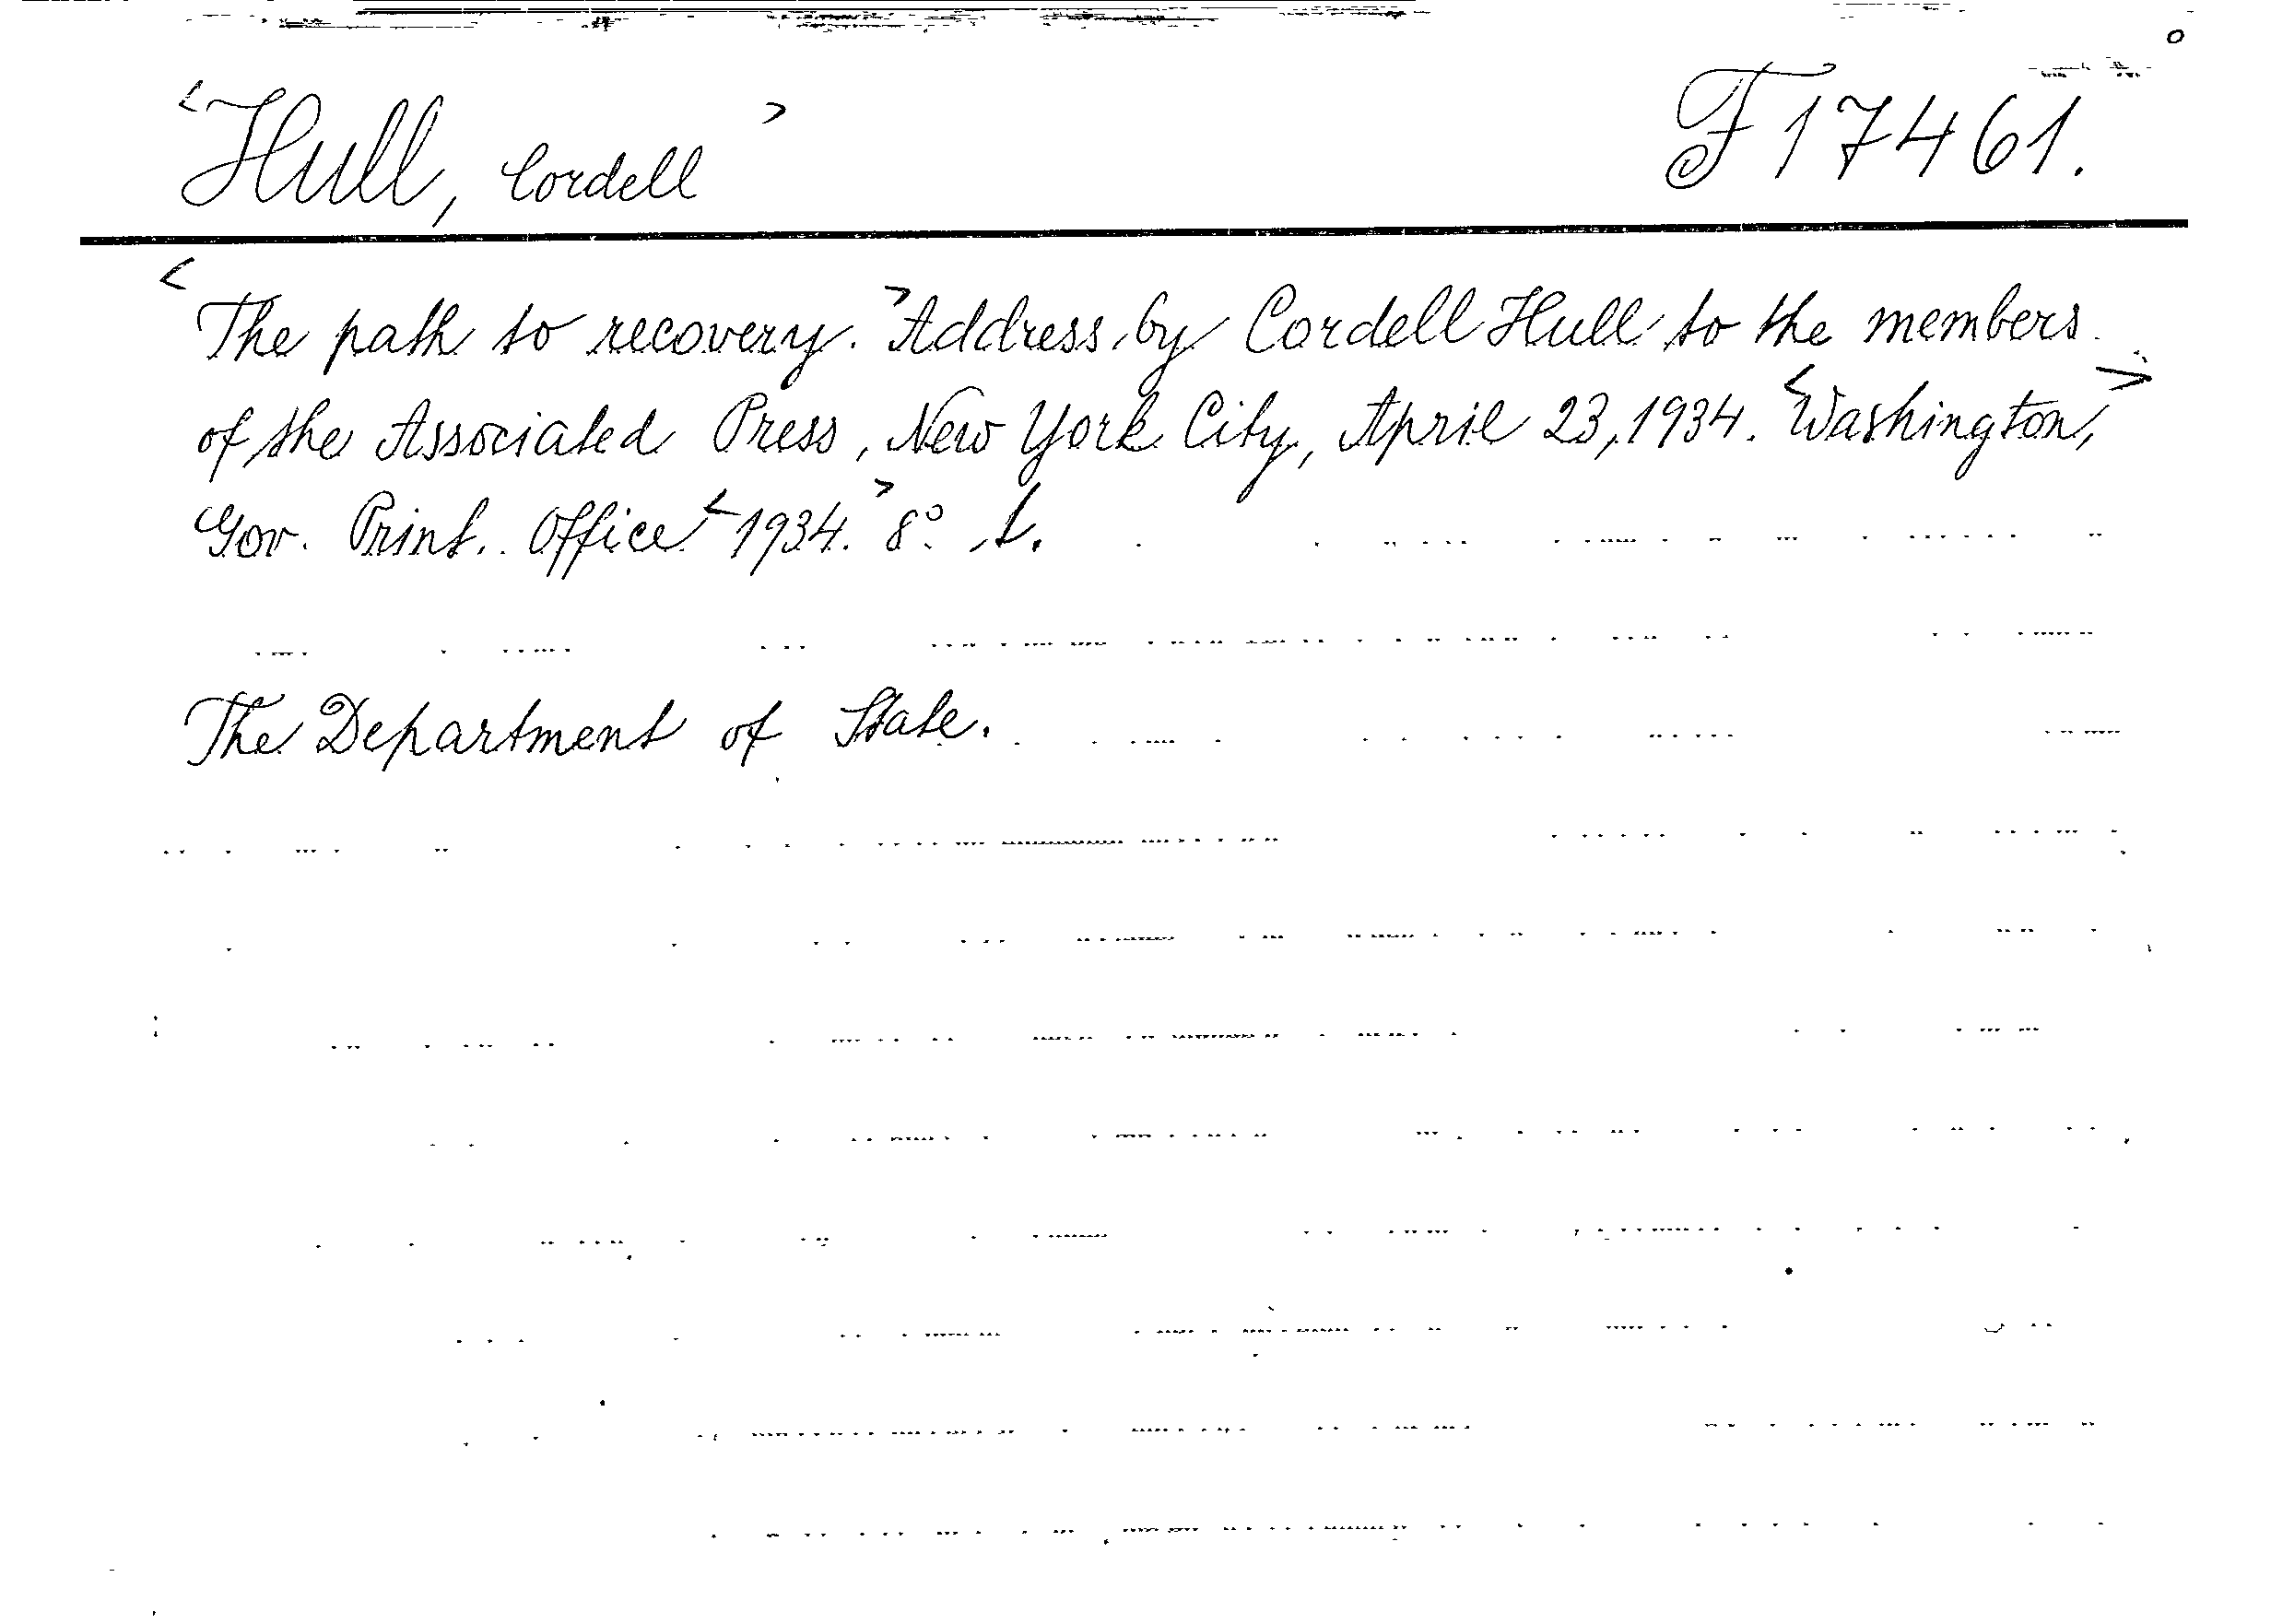 <Hull, Cordell> F 17461.
<The path to recovery.> Address by Cordell Hull to the members
of the Associated Press, New York City, April 23, 1934. <Washington,>
Gov. Print. Office <1934.> 8°.
The Department of State.